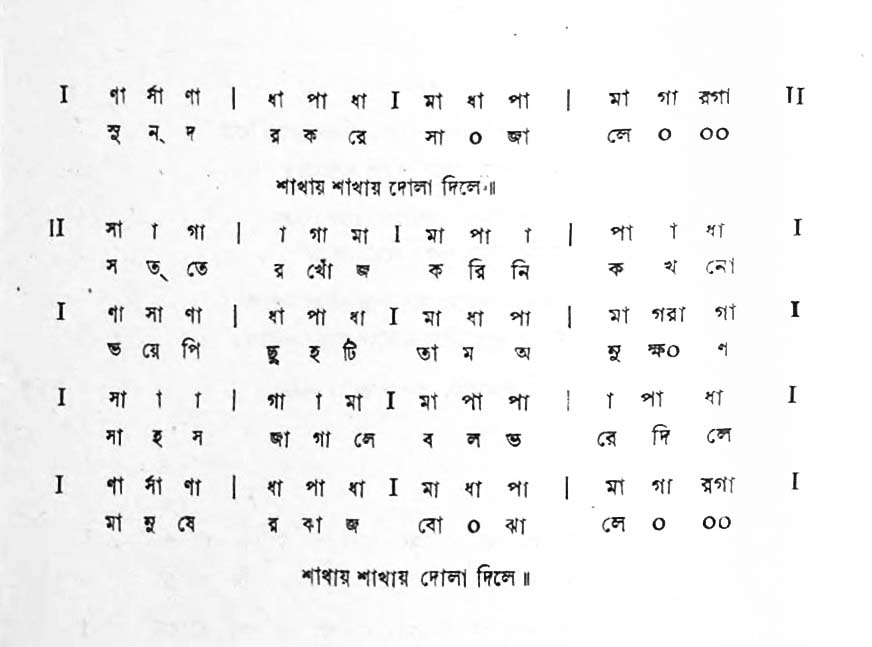 I ণা র্সা ণা | ধা পা ধা I মা ধা পা | মা গা রগা II
সু ন্ দ র ক রে সা ০ জা লে ০ ০০
শাখায় শাখায় দোলা দিলে॥
II সা া গা | া গা মা I মা পা া | পা া ধা I
স ত্ তে র খোঁ জ ক রি নি ক খ নো
I ণা সা ণা | ধা পা ধা I মা ধা পা | মা গরা গা I
ভ য়ে পি ছু হ টি তা ম অ নু ক্ষ০ ণ
I সা া া | গা া মা I মা পা পা | া পা ধা I
সা হ স জা গা লে ব ল ভ রে দি লে
I ণা র্সা ণা | ধা পা ধা I মা ধা পা | মা গা রগা I
মা নু ষে র কা জ বো ০ ঝা লে ০ ০০
শাখায় শাখায় দোলা দিলে॥